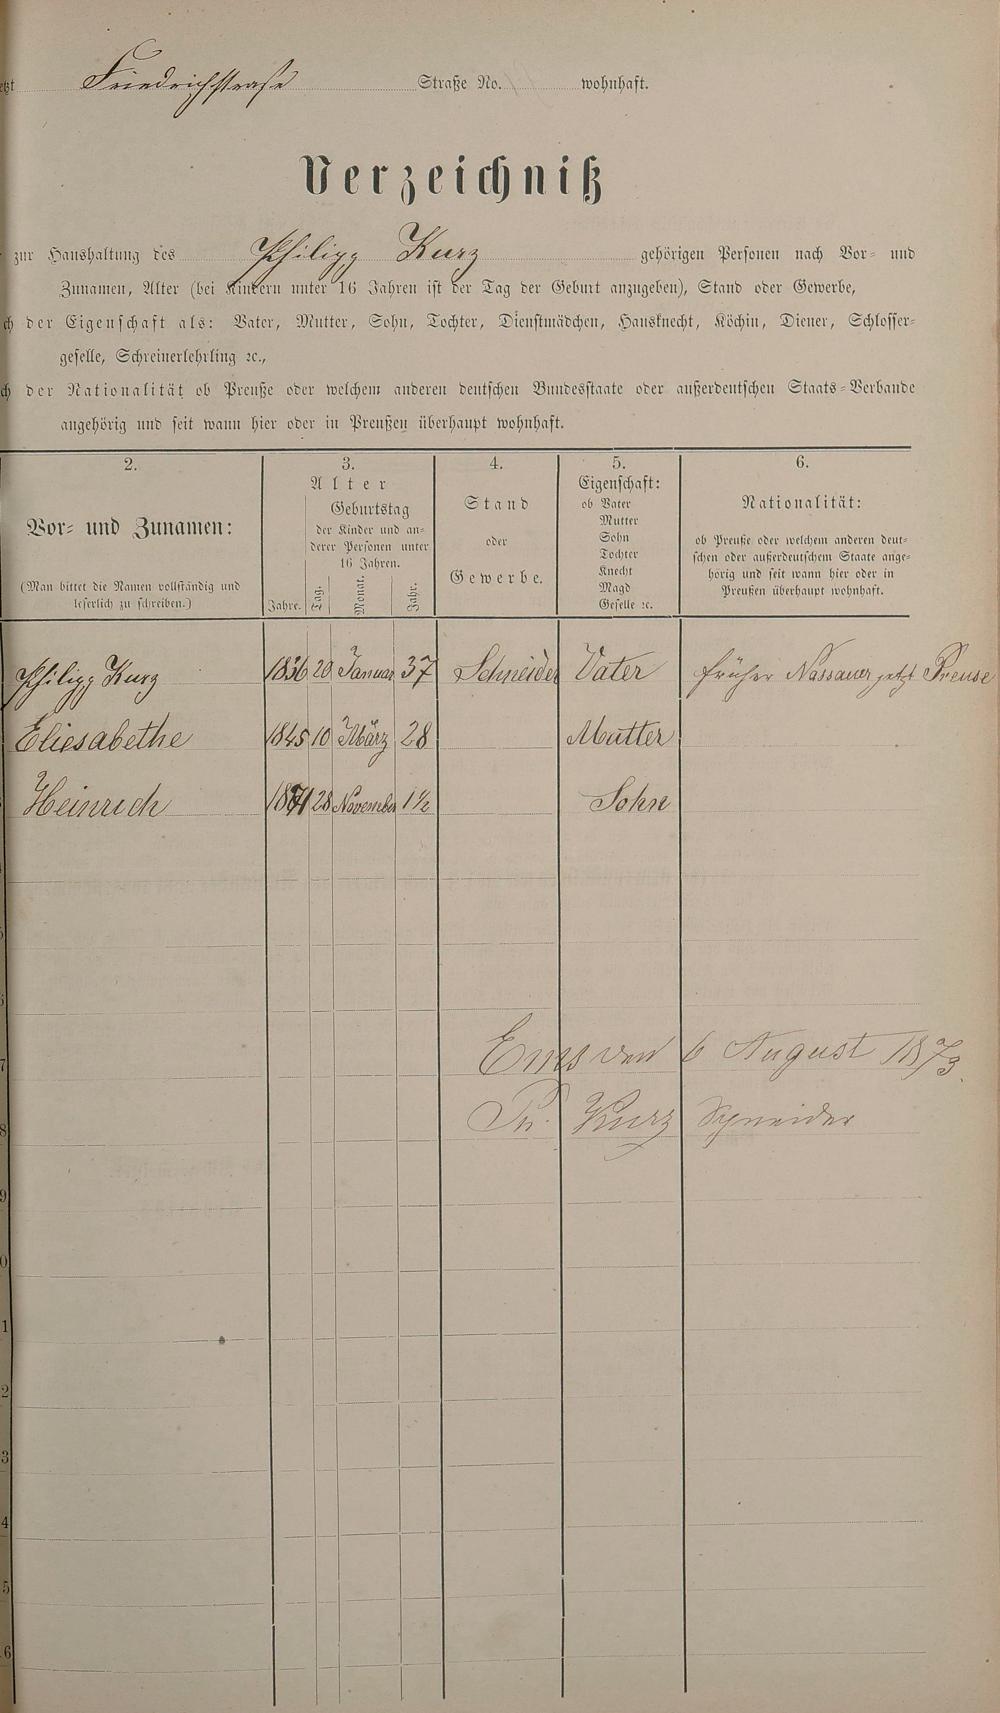 etzt Friedrichstrase Straße No. wohnhaft.
Verzeichniß
zur Haushaltung des Philipp Kurz gehörigen Personen nach Vor- und
Zunamen, Alter (bei Kindern unter 16 Jahren ist der Tag der Geburt anzugeben), Stand oder Gewerbe,
ch der Eigenschaft als: Vater, Mutter, Sohn, Tochter, Dienstmädchen, Hausknecht, Köchin, Diener, Schlosser-
geselle, Schreinerlehrling ꝛc.,
ch der Nationalität ob Preuße oder welchem anderen deutschen Bundesstaate oder außerdeutschen Staats-Verbande
angehörig und seit wann hier oder in Preußen überhaupt wohnhaft.
2. 3. 4. 5. 6.
Vor- und Zunamen:
(Man bittet die Namen vollständig und
leserlich zu schreiben.)
Alter
Geburtstag
der Kinder und an-
derer Personen unter
16 Jahren.
Jahre. Tag. Monat. Jahr.
Stand
oder
Gewerbe.
Eigenschaft:
ob Vater
Mutter
Sohn
Tochter
Knecht
Magd
Geselle ꝛc.
Nationalität:
ob Preuße oder welchem anderen deut-
schen oder außerdeutschem Staate ange-
hörig und seit wann hier oder in
Preußen überhaupt wohnhaft.
Philipp Kurz 1836 20 Januar 37 Schneider Vater früher Nassauer jetzt Preuse
Eliesabethe 1845 10 März 28 Mutter
Heinrich 1871 28 November 1½ Sohn
5
6
7
Ems den 6 August 1873.
8
Ph. Kurz Schneider
9
0
1
2
3
4
5
6